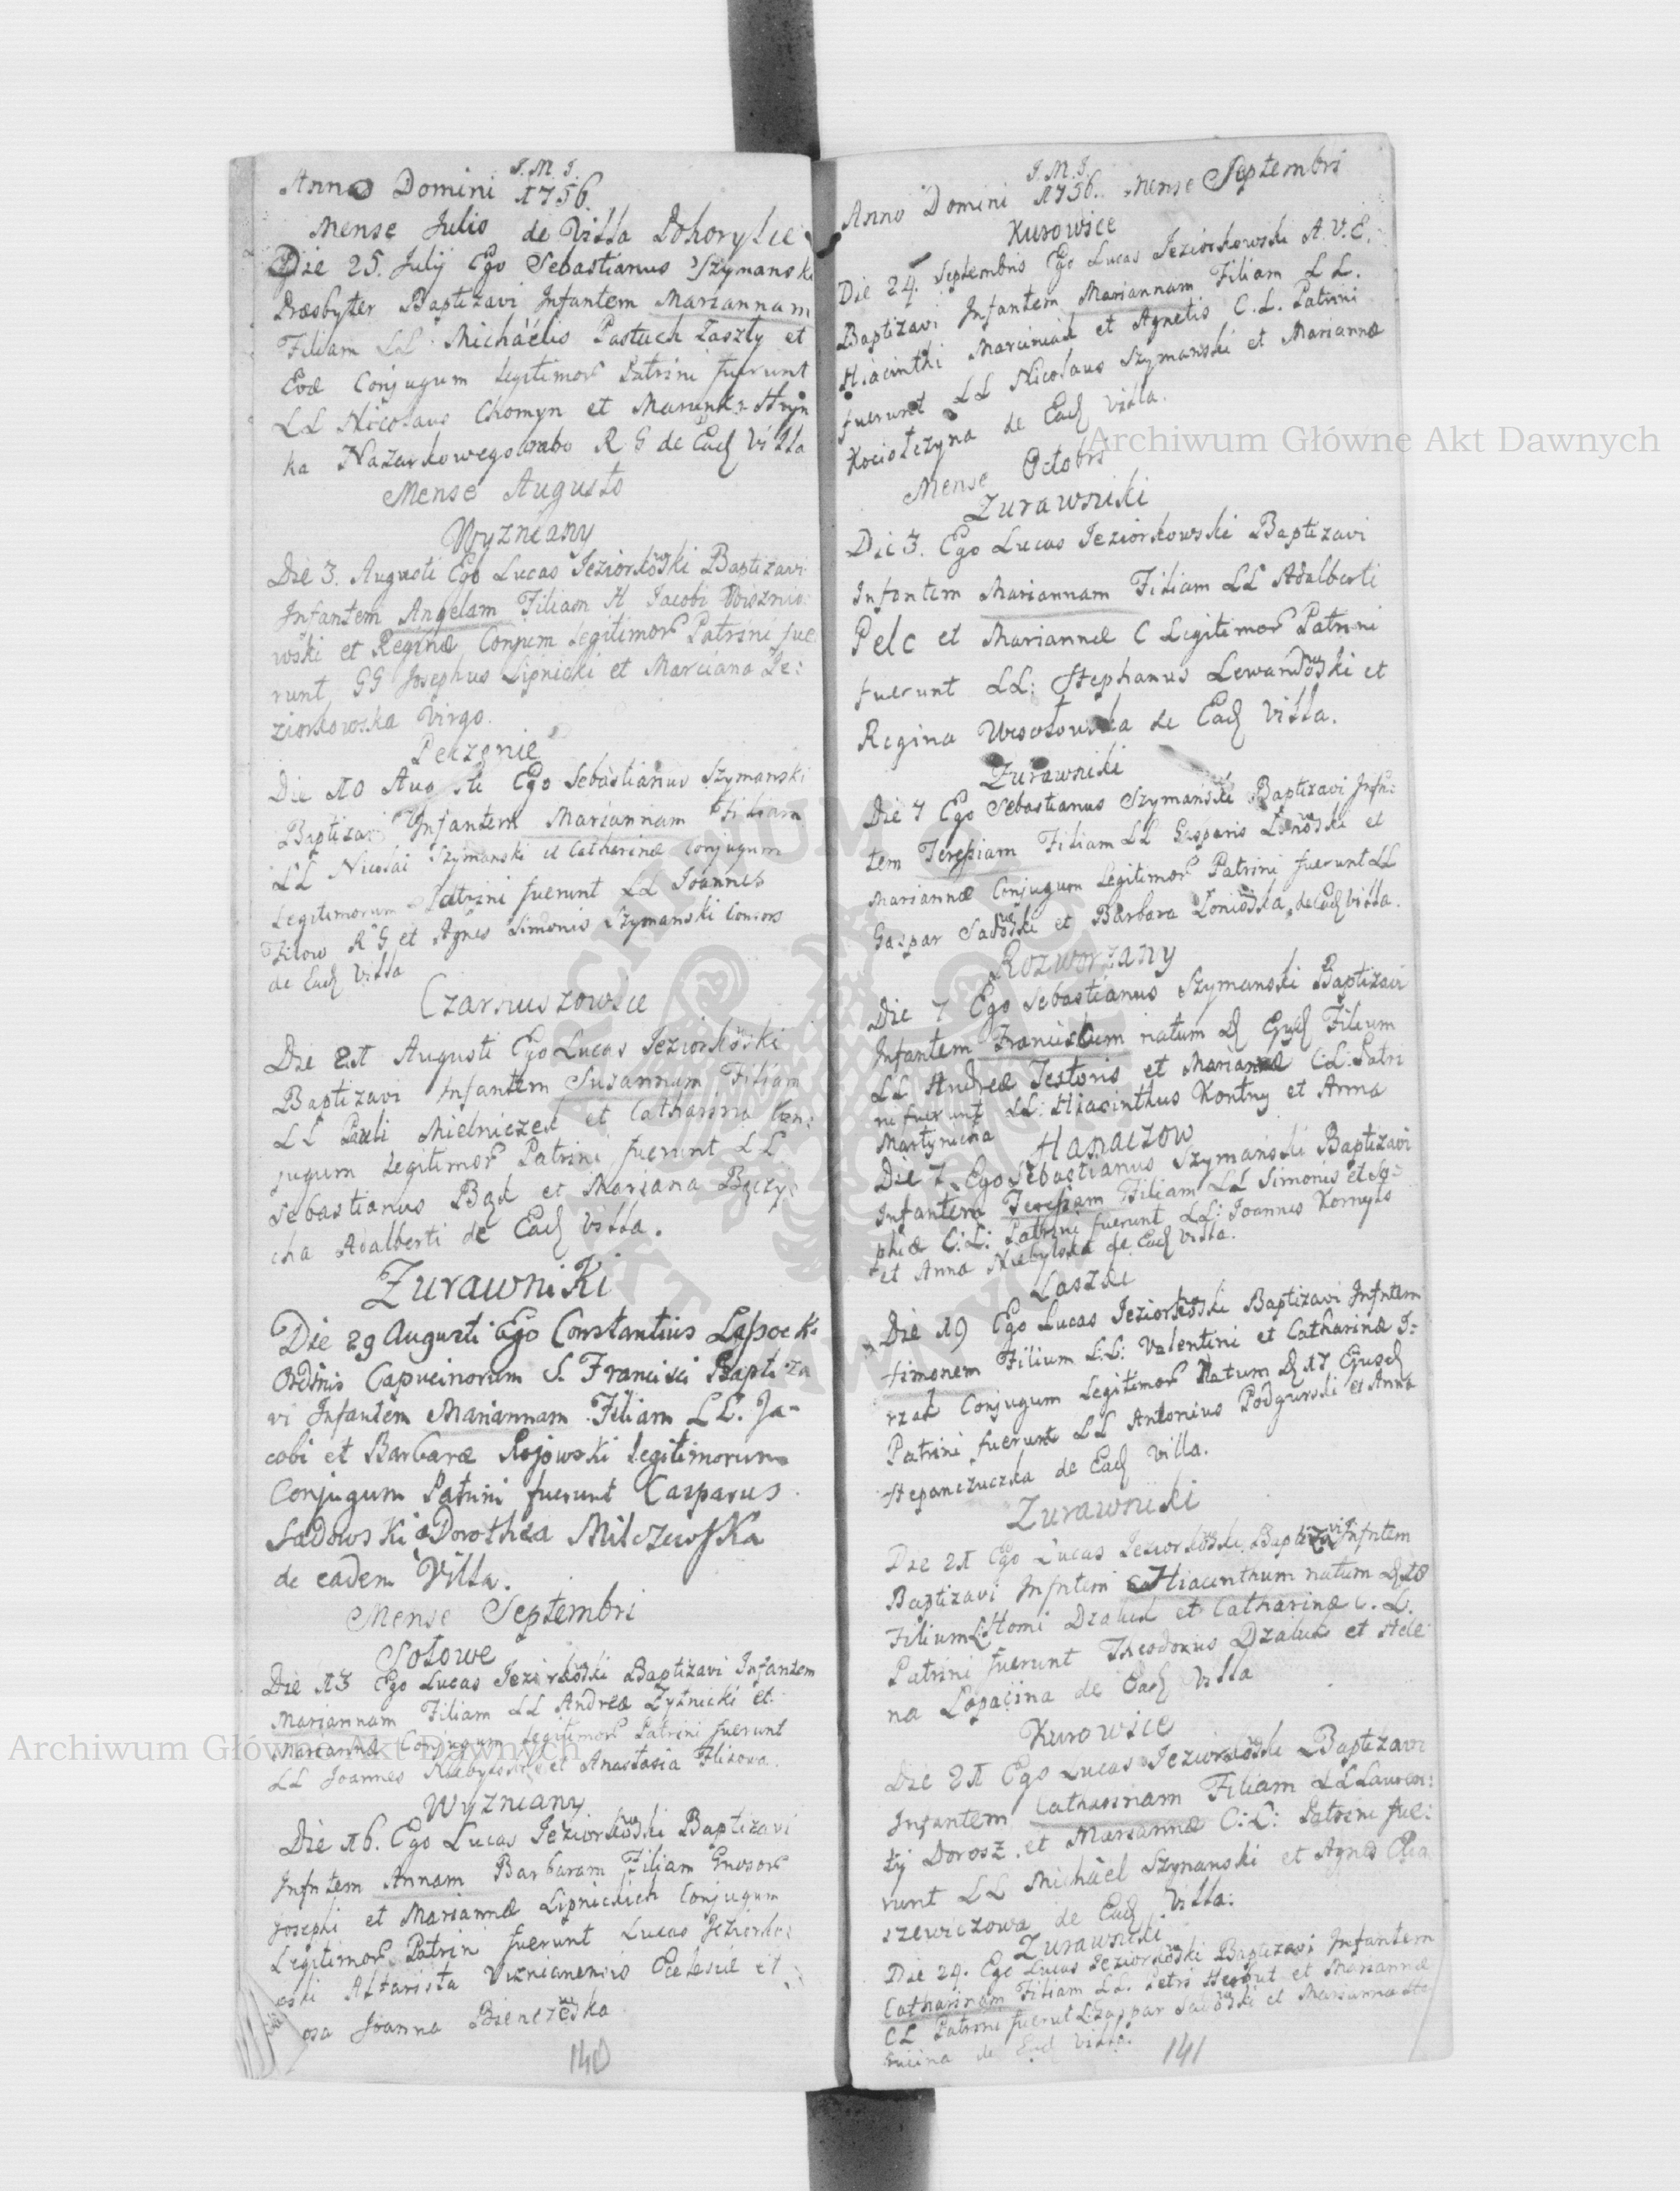 J. M. J.
Anno Domini 1756.
Mense Julio de Villa Dohorylce
Die 25. Julij Ego Sebastianus Szymanski
Præsbyter Baptizavi Infantem Mariannam
Filiam LL Michäelis Pastuch Laszty et
Evæ Conjugum Legitimor Patrini fuerunt
LL Nicolaus Chomyn et Marunka Hryn
ka Nazarkowego R G de Ead Villa
Mense Augusto
Wyzniany
Die 3. Augusti Ego Lucas Jeziorkowski Baptizavi
Infantem Angelam Filiam Jacobi
wski et Reginæ Conjum Legitimor Patrini fue
runt GG Josephus Lipnicki et Marciana Je:
ziorkowska Virgo.
Peczenie
Die 10 Augusti Ego Sebastianus Szymanski
Baptizavi Infantem Mariannam Filiam
LL Nicolai Szymanski et Catharinæ Conjugum
Legitimorum Patrini fuerunt LL Joannes
R G et Agnes Simonis Szymanski Consors
de Ead Villa
Czarnuszowice
Die 21 Augusti Ego Lucas Jeziorkowski
Baptizavi Infantem Susannam Filiam
LL Pauli Mielniczek et Catharina Con:
jugum Legitimor Patrini fuerunt LL
Sebastianus Bąk et Mariana Bączy:
cha Adalberti de Ead Villa.
Zurawniki
Die 29 Augusti Ego Constantius
Ordinis Capucinorum S. Francisci Baptiza
vi Infantem Mariannam Filiam LL. Ja-
cobi et Barbaræ Rojowski legitimorum
Conjugum Patrini fuerunt Casparus
Sadowski & Dorothea MilczewsKa
de eadem Villa.
Mense Septembri
Sołowe
Die 13 Ego Lucas Jeziorkowski Baptizavi Infantem
Mariannam Filiam LL Andreæ Zytnicki et
Mariannæ Conjugum Legitimor Patrini fuerunt
LL Joannes et Anastasia
Wyzniany
Die 16. Ego Lucas Jeziorkowski Baptizavi
Infntem Annam Barbaram Filiam Gnosor
Josephi et Mariannæ Lipnickich Conjugum
Legitimor Patrin fuerunt Lucas Jeziorko:
wski Altarista Viznianensis Eclesiæ et
osa Joanna
140
J. M. J.
Anno Domini 1756. Mense Septembri
Kurowice
Die 24. Septembris Ego Lucas Jeziorkowski A. V. E.
Baptizavi Infantem Mariannam Filiam LL.
Hiacinthi Marciniak et Agnetis C. L. Patrini
fuerunt LL Nicolaus Szymanski et Mariannæ
Kociołczyna de Ead Villa.
Mense Octobri
Zurawniki
Die 3. Ego Lucas Jeziorkowski Baptizavi
Infantem Mariannam Filiam LL Adalberti
Pelc et Mariannæ C Legitimor Patrini
fuerunt LL: Stephanus Lewandowski et
Regina de Ead Villa.
Zurawniki
Die 7 Ego Sebastianus Szymański Baptizavi Infn:
tem Teresiam Filiam LL Gasparis et
Mariannæ Conjugum Legitimor Patrini fuerunt LL
Gaspar Sadowski et Barbara de Ead Villa.
Rozworzany
Die 7 Ego Sebastianus Szymanski Baptizavi
Infantem Franciscum natum D Ejusd Filium
LL Andreæ Textoris et Mariannæ C:L: Patri
ni fuerunt LL: Hiacinthus Kontny et Anna
Martynicha
Hanaczow
Die 7 Ego Sebastianus Szymański Baptizavi
Infantem Teresiam Filiam LL Simonis et So=
phiæ C: L: Patrini fuerunt LL: Joannes Kornyło
et Anna Niebylska de Ead Villa.
Laszki
Die 19 Ego Lucas Jeziorkowski Baptizavi Infntem
Simonem Filium L:L: Valentini et Catharinæ J:
rzak Conjugum Legitimor Natum D 17 Ejusd
Patrini fuerunt LL Antonius Podgurski et Anna
Stepanczuczka de Ead Villa.
Zurawniki
Die 21 Ego Lucas Jeziorkowski Baptizavi Infntem
Baptizavi Infntem Hiacinthum natum D 18
Filium LL Dziaduk et Catharinæ C. L.
Patrini fuerunt Theodorus Dziaduk et Hele
na Lopacina de Ead Villa
Kurowice
Die 21 Ego Lucas Jeziorkowski Baptizavi
Infantem Catharinam Filiam LL Lauren:
tij Dorosz et Mariannæ C: L: Patrini fue:
runt LL Michäel Szymanski et Agnes
szewiczowa de Ead Villa:
Zurawniki
Die 24. Ego Lucas Jeziorkowski Baptizavi Infantem
Catharinam Filiam LL. Petri et Mariannæ
CL Patrini fuerut LL Gaspar Sadowski et Marianna
de Ead Villa.
141
Archiwum Główne Akt Dawnych
Archiwum Główne Akt Dawnych
ARCHIWUM GŁÓWNE AKT DAWNYCH